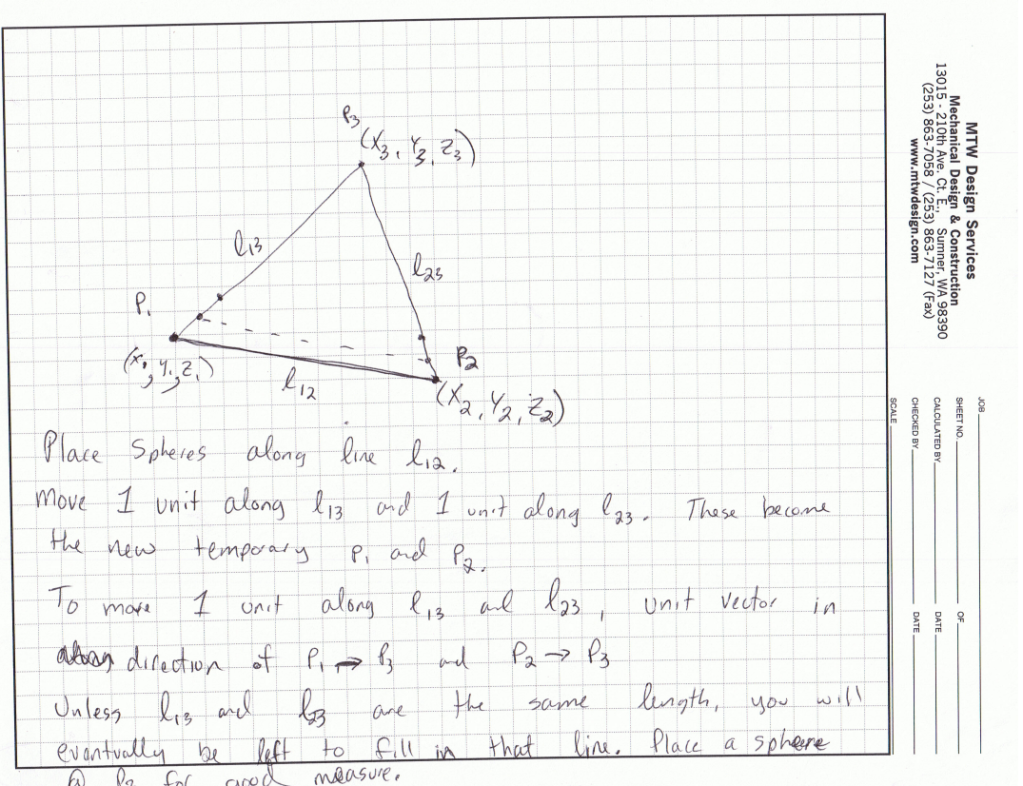 P3
(X3, Y3, Z3)
l13
l23
P1
(x1, y1, z1)
P2
l12
(X2, Y2, Z2)
Place Spheres along line l12.
Move 1 unit along l13 and 1 unit along l23. These become
the new temporary P1 and P2.
To move 1 unit along l13 and l23, unit vector in
direction of P1 → P3 and P2 → P3
Unless l13 and l23 are the same length, you will
eventually be left to fill in that line. Place a sphere
@ P3 for good measure.
MTW Design Services
Mechanical Design & Construction
13015 - 210th Ave. Ct. E., Sumner, WA 98390
(253) 863-7058 / (253) 863-7127 (Fax)
www.mtwdesign.com
JOB
SHEET NO. OF
CALCULATED BY DATE
CHECKED BY DATE
SCALE